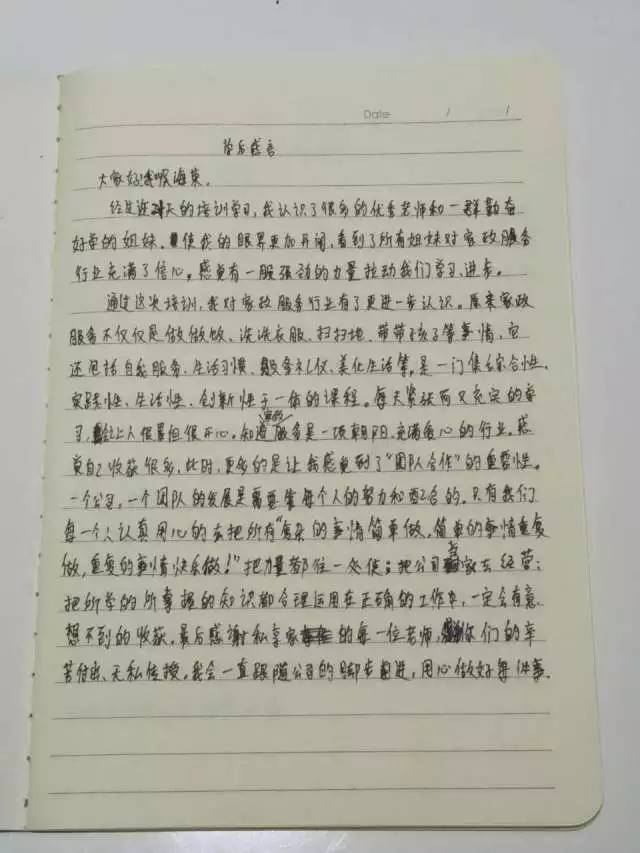 Date / /
学后感言
大家好我叫海荣。
经过这几天的培训学习,我认识了很多的优秀老师和一群勤奋
好学的姐妹。使我的眼界更加开阔,看到了所有姐妹对家政服务
行业充满了信心。感觉有一股强劲的力量拉动我们学习、进步。
通过这次培训,我对家政服务行业有了更进一步认识。原来家政
服务不仅仅是做做饭、洗洗衣服、扫扫地、带带孩子等事情,它
还包括自我服务、生活习惯、服务礼仪、美化生活等,是一门集综合性、
实践性、生活性、创新性于一体的课程。每天紧张而又充实的学
习,让人很累但很开心。知道家政服务是一项朝阳、充满爱心的行业。感
觉自己收获很多,此时,更多的是让我感觉到了"团队合作"的重要性。
一个公司,一个团队的发展是需要靠每个人的努力和配合的。只有我们
每一个人认真用心的去把所有"复杂的事情简单做,简单的事情重复
做,重复的事情快乐做!"把力量都往一处使;把公司当家去经营;
把所学的所掌握的知识都合理运用在正确的工作中,一定会有意
想不到的收获。最后感谢私享家的每一位老师,你们的辛
苦付出、无私传授。我会一直跟随公司的脚步前进,用心做好每件事。